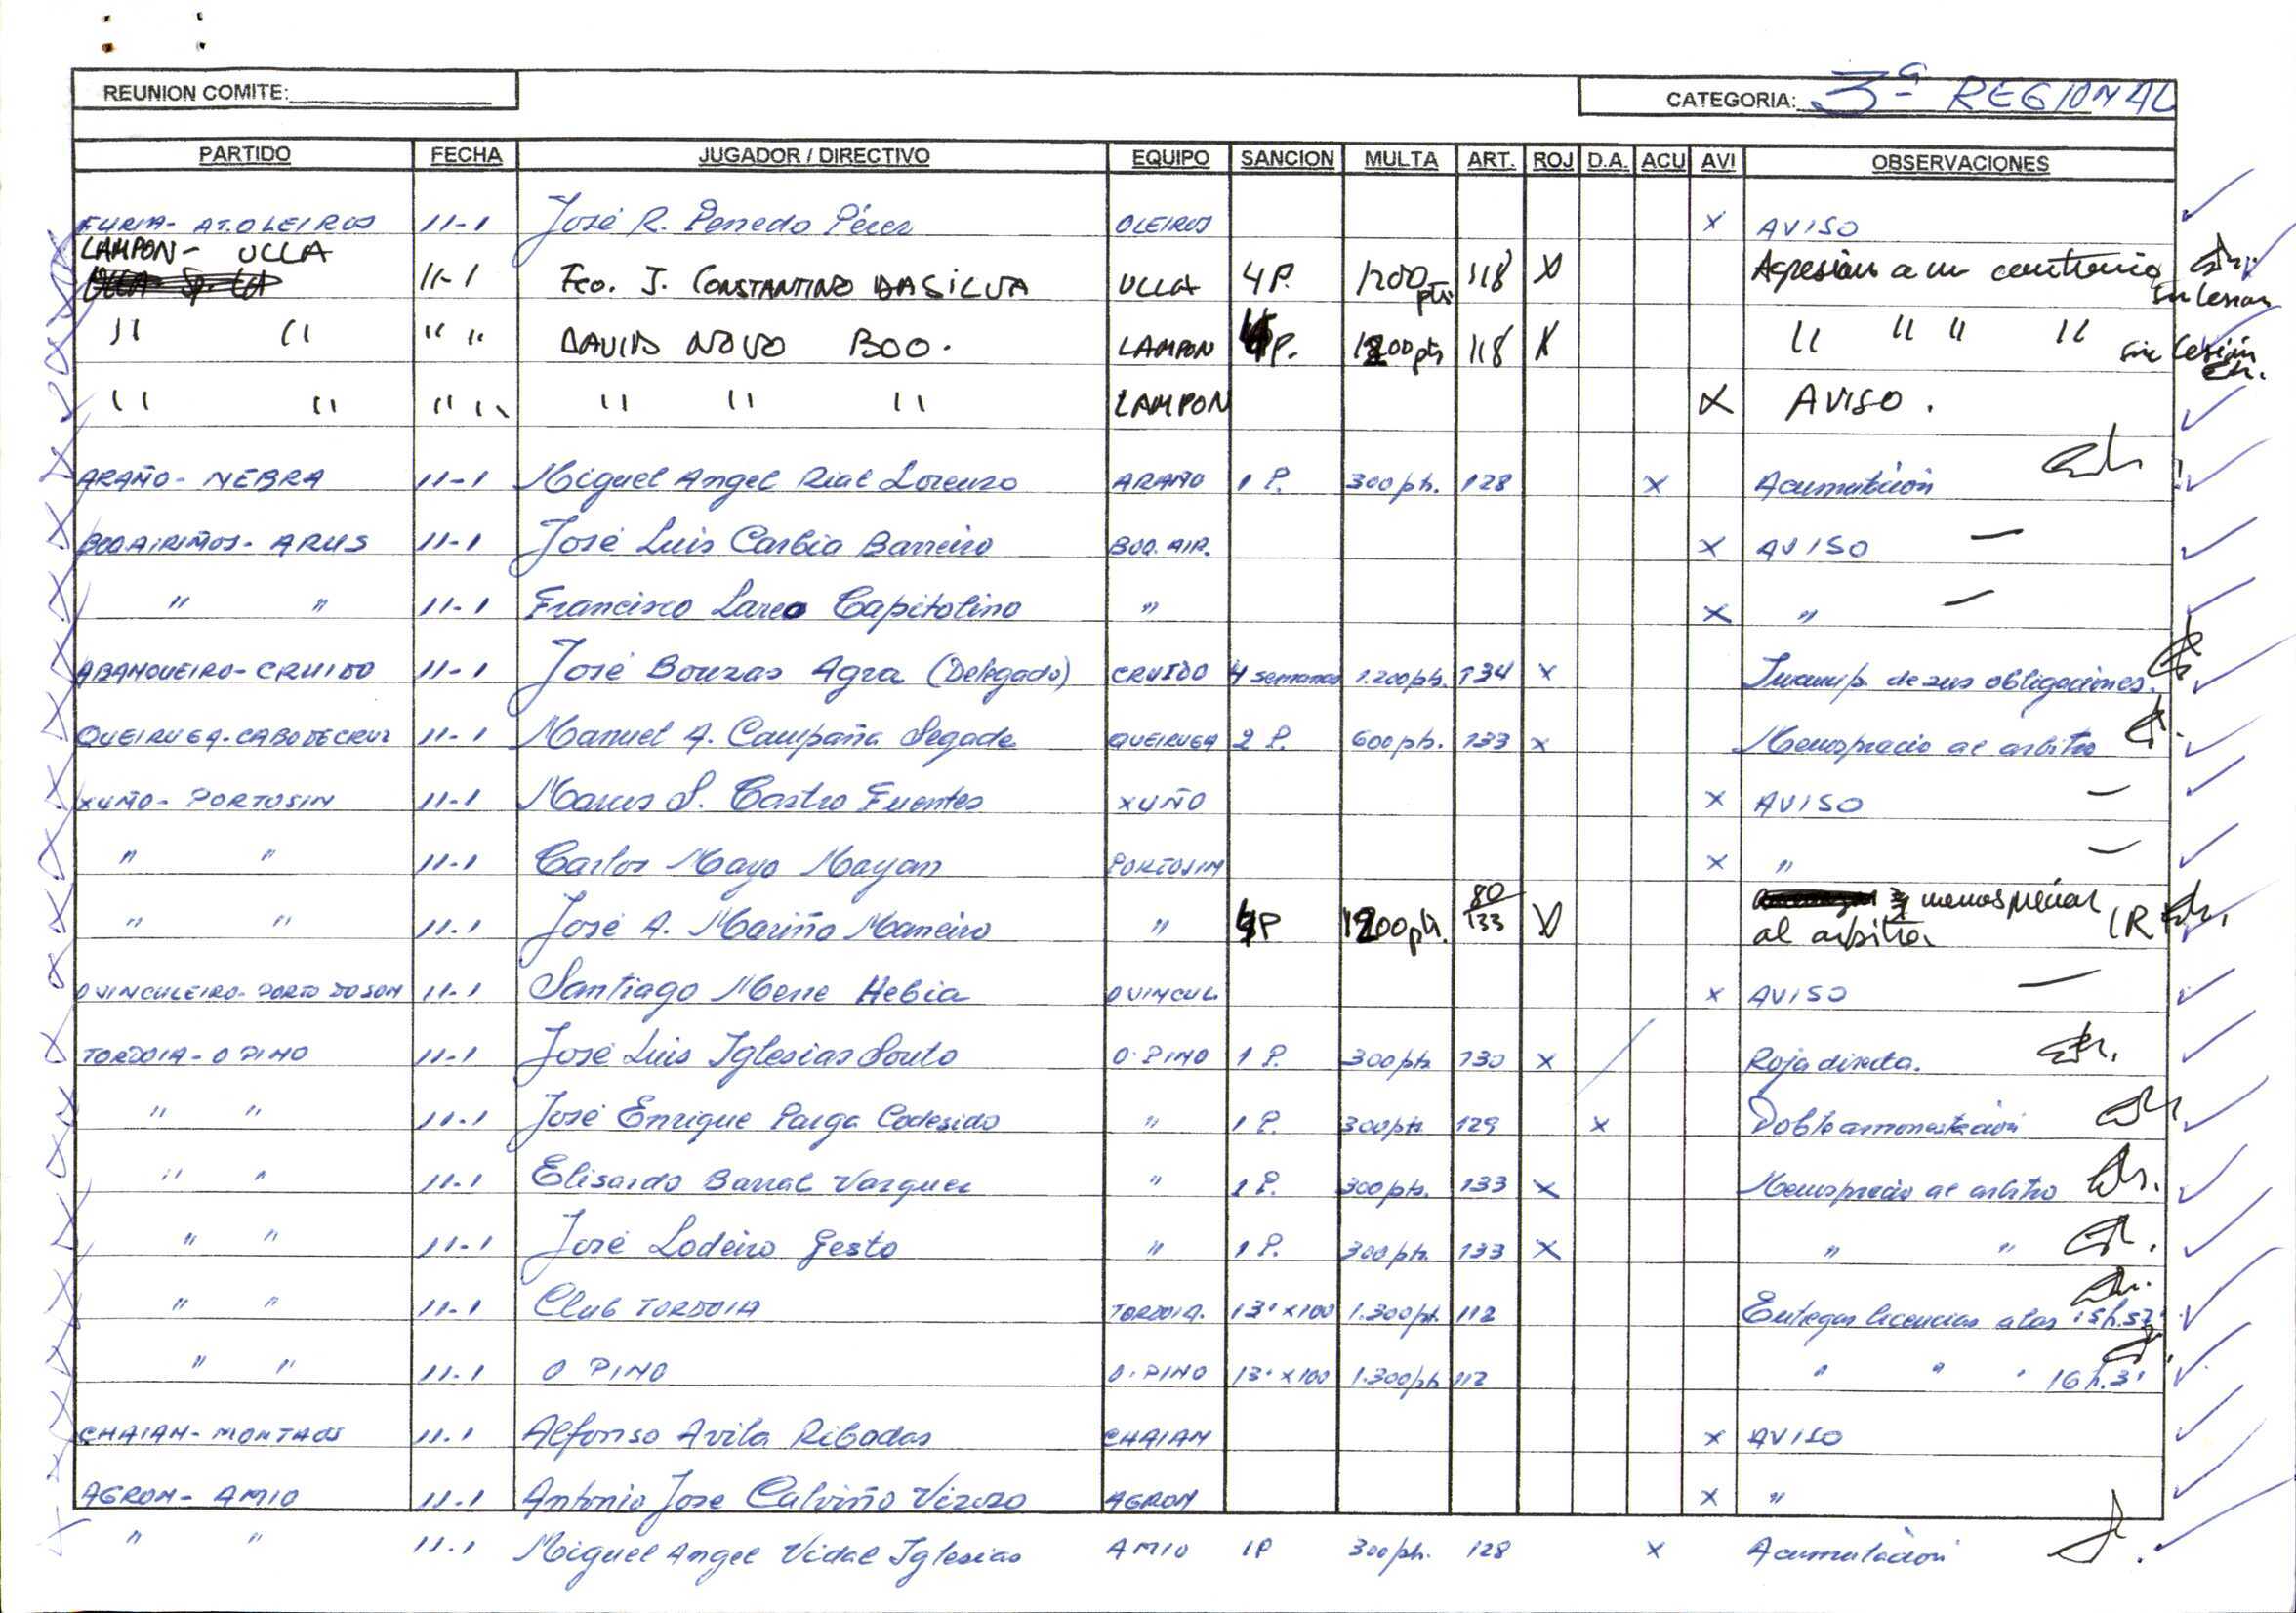 REUNION COMITE: CATEGORIA: 3ª REGIONAL
PARTIDO FECHA JUGADOR / DIRECTIVO EQUIPO SANCION MULTA ART. ROJ D.A. ACU AVI OBSERVACIONES
FURIA - AT. OLEIROS 11-1 José R. Penedo Pérez OLEIROS X AVISO
LAMPON - ULLA 11-1 Fco. J. CONSTANTINO DASILVA ULLA 4 P. 1200 pts. 118 X Agresión a un contrario sin lesion
" " " " DAVID NOVO BOO. LAMPON 4P. 1200 pts 118 X " " " " sin lesión
" " " " " " " LAMPON X AVISO.
ARAÑO - NEBRA 11-1 Miguel Angel Rial Lorenzo ARAÑO 1 P. 300 pts. 128 X Acumulación
BOQ AIRIÑOS - ARUS 11-1 José Luis Carbia Barreiro BOQ. AIR. X AVISO
" " 11-1 Francisco Lareo Capitolino " X "
ABANQUEIRO - CRUIDO 11-1 José Bouzas Agra (Delegado) CRUIDO 4 semanas 1.200 pts. 134 X Incump. de sus obligaciones.
QUEIRUGA - CABO DE CRUZ 11-1 Manuel A. Campaña Segade QUEIRUGA 2 P. 600 pts. 133 X Menosprecio al arbitro
XUÑO - PORTOSIN 11-1 Marcos S. Castro Fuentes XUÑO X AVISO
" " 11-1 Carlos Mayo Mayan PORTOSIN X "
" " 11-1 José A. Mariño Maneiro " 4P 1200 pts. 80/133 X menospreciar al arbitro.
O VINCULEIRO - PORTO DO SON 11-1 Santiago Mene Hebia O VINCUL. X AVISO
TORDOIA - O PINO 11-1 José Luis Iglesias Souto O. PINO 1 P. 300 pts 130 X Roja directa.
" " 11-1 José Enrique Parga Codesido " 1 P. 300 pts 129 X Doble amonestación
" " 11-1 Elisardo Barral Vazquez " 1 P. 300 pts. 133 X Menosprecio al arbitro
" " 11-1 José Lodeiro Gesto " 1 P. 300 pts. 133 X " "
" " 11-1 Club TORDOIA TORDOIA. 13' x 100 1.300 pts. 112 Entregar licencias a las 15 h. 57'
" " 11-1 O PINO O. PINO 13' x 100 1.300 pts 112 " " " 16 h. 3'
CHAIAN - MONTAOS 11-1 Alfonso Avila Ribadas CHAIAN X AVISO
AGRON - AMIO 11-1 Antonio Jose Calviño Vizoso AGRON X "
" " 11-1 Miguel Angel Vidal Iglesias AMIO 1P 300 pts. 128 X Acumulación